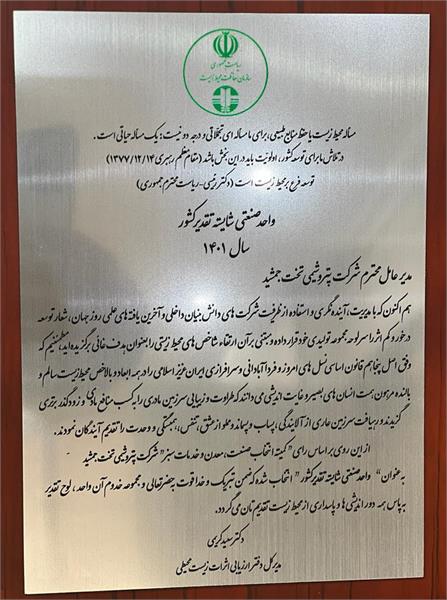 ریاست جمهوری
سازمان حفاظت محیط زیست
مساله محیط زیست یا حفظ منابع طبیعی، برای ما مساله ای تجملاتی و درجه دو نیست؛ یک مساله حیاتی است .
در تلاش ما برای توسعه کشور، اولویت باید در این بخش باشد (مقام معظم رهبری ۱۳۷۷/۱۲/۱۴)
توسعه فرع بر محیط زیست است (دکتر رئیسی - ریاست محترم جمهوری)
واحد صنعتی شایسته تقدیر کشور
سال ۱۴۰۱
مدیر عامل محترم شرکت پتروشیمی تخت جمشید
هم اکنون که با مدیریت، آینده نگری و استفاده از ظرفیت شرکت های دانش بنیان داخلی و آخرین یافته های علمی روز جهان، شعار توسعه
درخور و کم اثر را سرلوحه مجموعه تولیدی خود قرار داده و مبتنی بر آن ارتقاء شاخص های محیط زیستی را بعنوان هدف غائی برگزیده اید، مطمئنیم که
وفق اصل پنجاهم قانون اساسی نسل های امروز و فردا آبادانی و سرافرازی ایران عزیز اسلامی را در همه ابعاد و بالاخص محیط زیست سالم و
بالنده مرهون همت انسان های بصیر و غایت اندیشی می دانند که طراوت و زیبایی سرزمین مادری را به کسب منافع مادی و زودگذر برتری
گزیدند و رهیافت سرزمین عاری از آلایندگی، پساب و پسماند و مملو از عشق، تنفس، همبستگی و وحدت را تقدیم آیندگان نمودند.
از این روی بر اساس رای " کمیته انتخاب صنعت، معدن و خدمات سبز" شرکت پتروشیمی تخت جمشید
به عنوان " واحد صنعتی شایسته تقدیر کشور " انتخاب شده که ضمن تبریک و خدا قوت به حضرتعالی و مجموعه خدوم آن واحد ، لوح تقدیر
به پاس همه دور اندیشی ها و پاسداری از محیط زیست تقدیم تان می گردد.
دکتر سعید کریمی
مدیر کل دفتر ارزیابی اثرات زیست محیطی